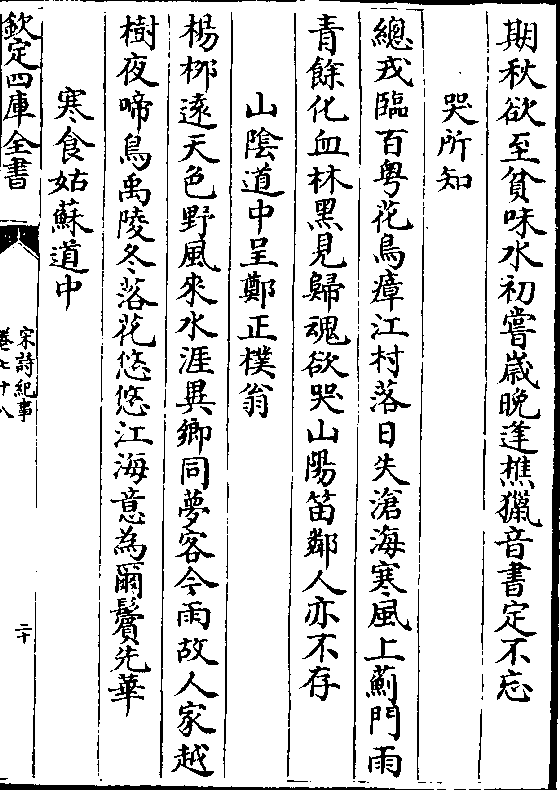 期秋欲至貧味水初嘗歳晚逢樵獵音書定不忘
哭所知
總戎臨百粤花鳥瘴江村落日失滄海寒風上薊門雨
青餘化血林黑見歸魂欲哭山陽笛鄰人亦不存
山陰道中呈鄭正樸翁
楊栁遠天色野風來水涯異鄉同夢客今雨故人家越
樹夜啼鳥禹陵冬落花悠悠江海意為爾鬢先華
寒食姑蘇道中
欽定四庫全書
宋詩紀事
卷七十八
二十